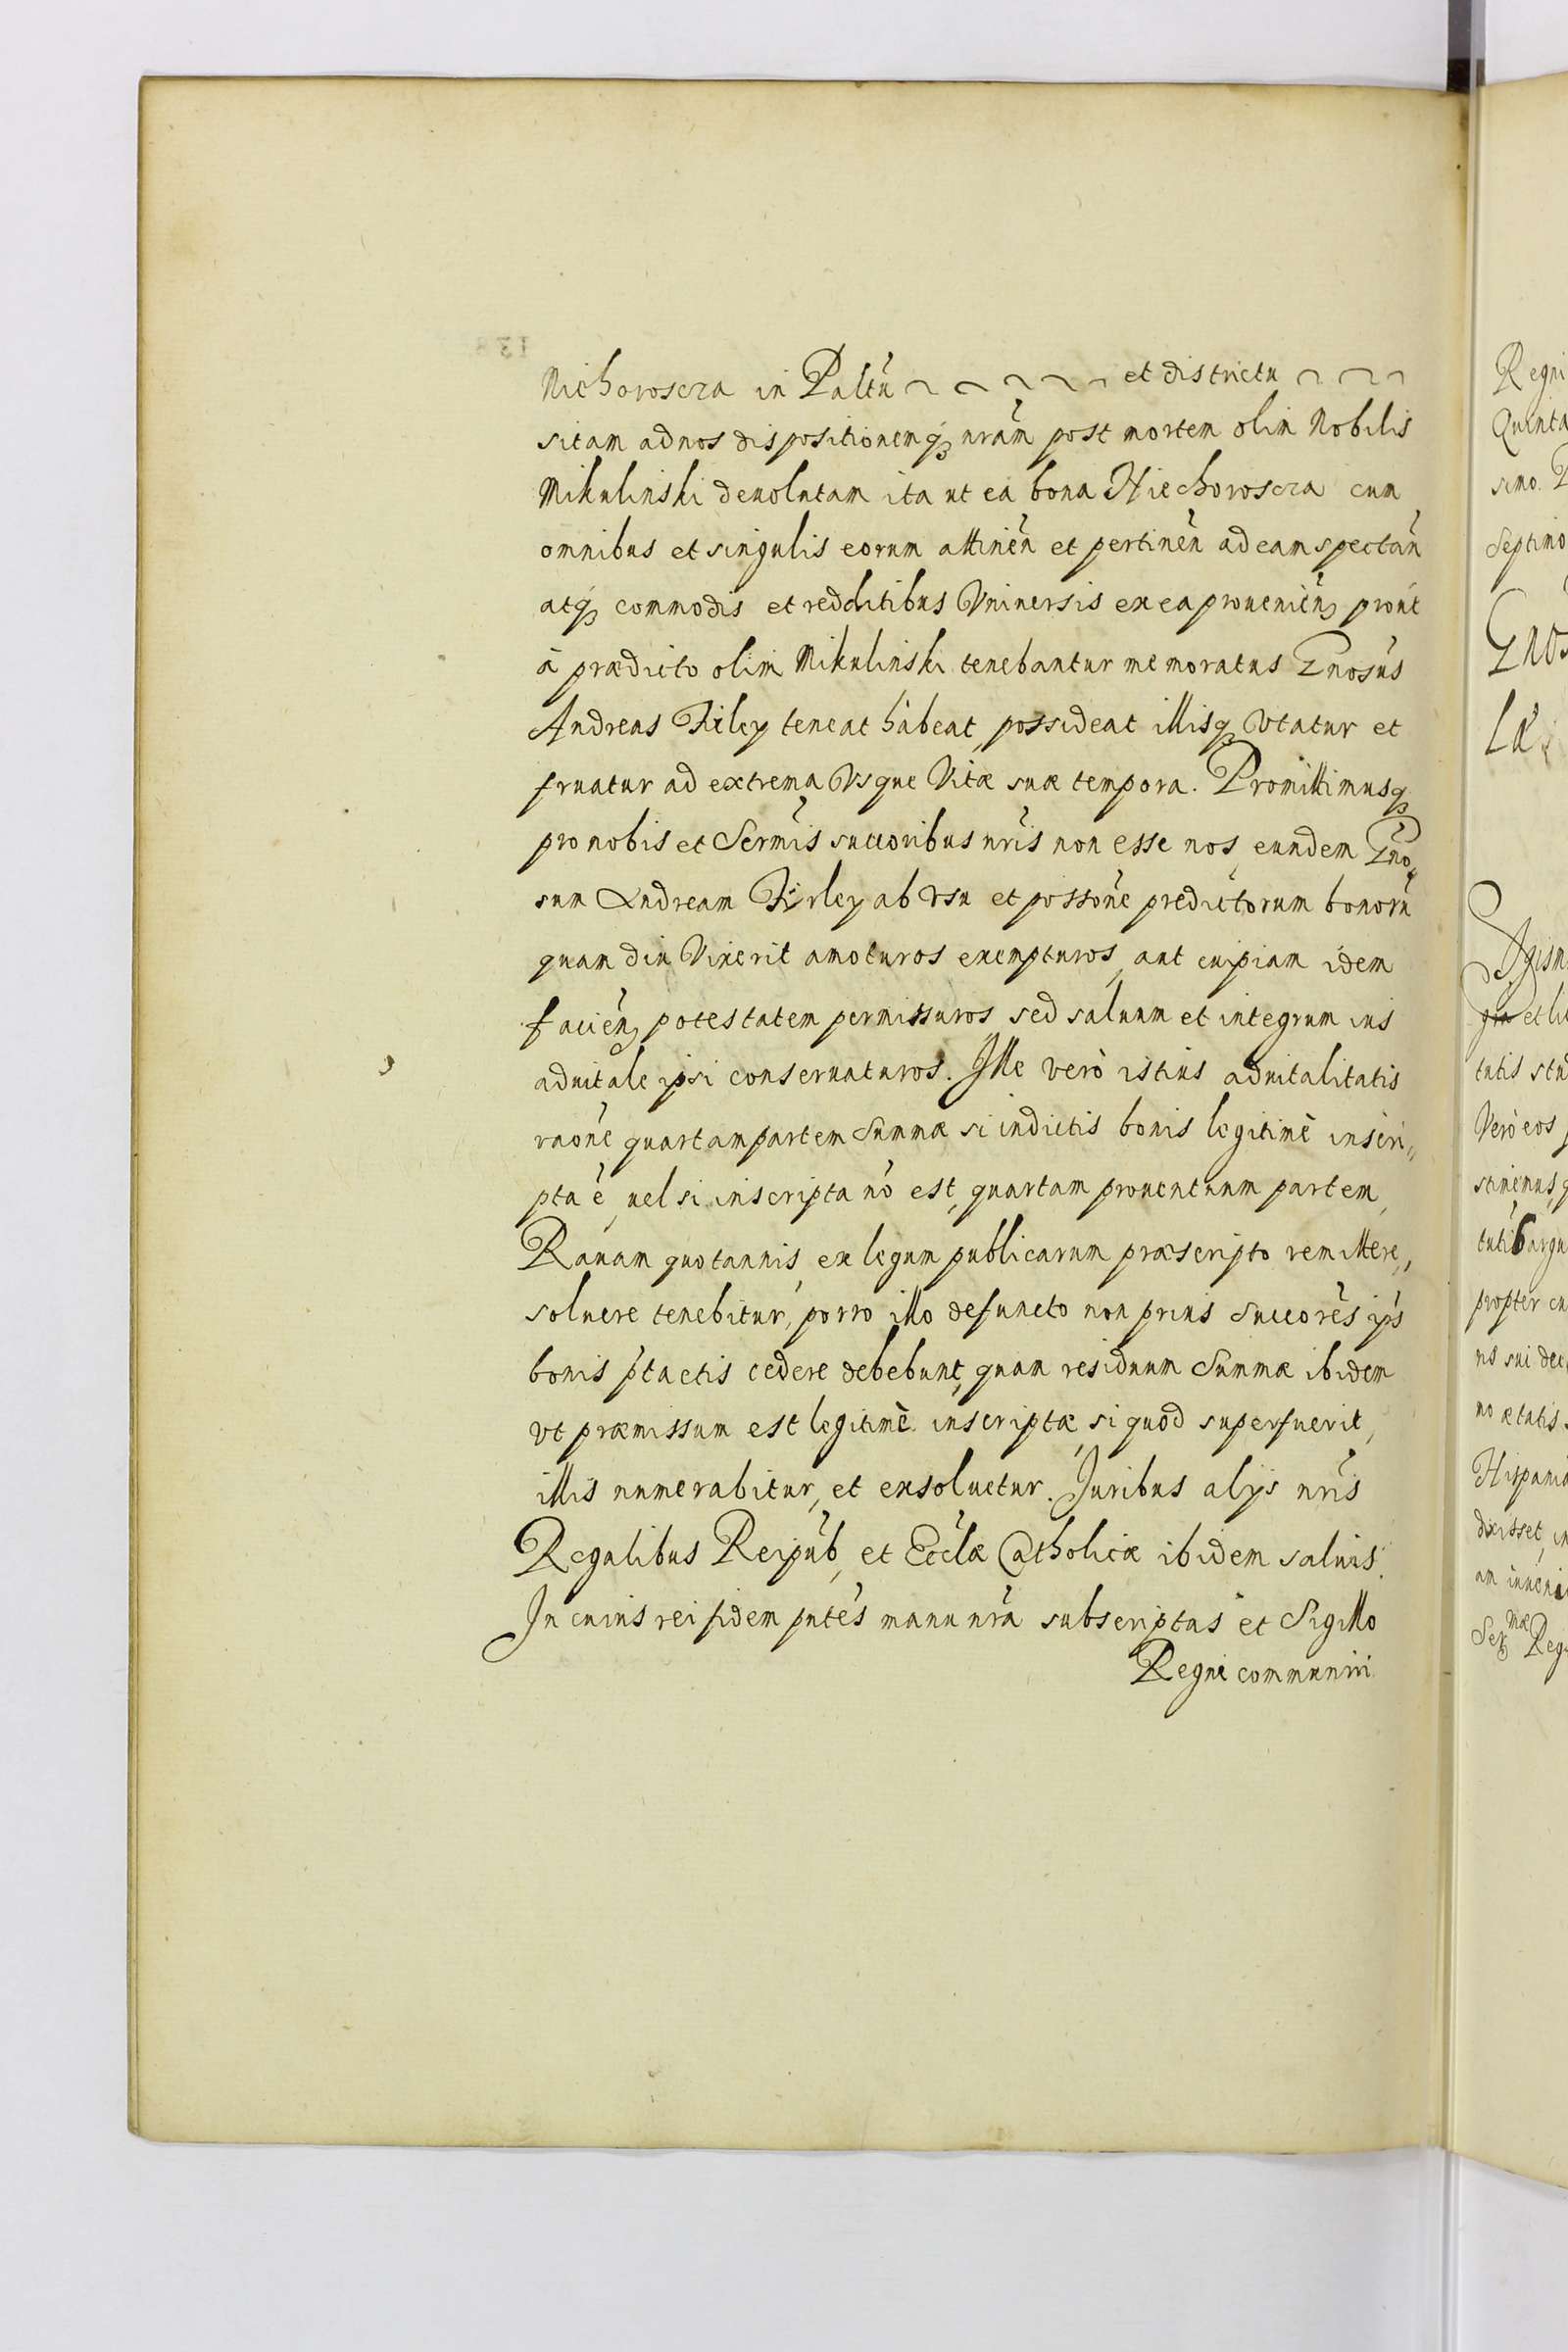 Niehoroscza in Paltũ et districtu
sitam ad nos dispositionemq̃ nrãm post mortem olim Nobilis
Mikulinski deuolutam ita ut ea bona Niechoroscza cum
omnibus et singulis eorum attineñ et pertineñ ad eam spectañ
atq̃ commodis et redditibus Vniuersis ex ea prouenieñ prout
à prædicto olim Mikulinski tenebantur memoratus Gnosus
Andreas Firley teneat habeat possideat illisq̃ Vtatur et
fruatur ad extrema Vsque Vitæ suæ tempora. Promittimusq̃
pro nobis et Sermis succoribus nris non esse nos eundem Gno„
sum Andream Firley ab Vsu et possone predictorum bonorũ
quam diu Vixerit amoturos exempturos, aut cuipiam idem
facieñ potestatem permissuros, sed saluum et integrum ius
aduitale ipsi conseruaturos. Ille verò istius aduitalitatis
raone quartam partem Summæ si in dictis bonis legitimè inscri„
pta ẽ, uel si inscripta nõ est, quartam prouentuum partem,
Rauam quotannis, ex legum publicarum præscripto remittere„
soluere tenebitur, porro illo defuncto non prius Succores ips
bonis ptactis cedere debebunt, quam residuum Summæ ibidem
vt præmissum est legitimè inscriptæ, si quod superfuerit,
illis numerabitur, et exsoluetur. Iuribus alijs nris
Regalibus Reipub, et Ecclæ Catholicæ ibidem saluis.
In cuius rei fidem pntes manu nra subscriptas et Sigillo
Regni communiri
Regni
Quinta
simo.
Septimo
Gnos
Sigism
et lit
tutis stu
Verò eos
stinemus, q
propter cu
ris sui dec
no ætatis s
Hispania
dixisset, in